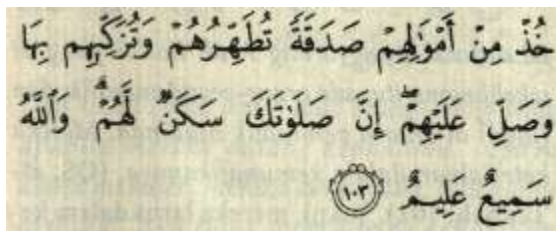 خُذْ مِنْ أَمْوَٰلِهِمْ صَدَقَةً تُطَهِّرُهُمْ وَتُزَكِّيهِم بِهَا
وَصَلِّ عَلَيْهِمْۖ إِنَّ صَلَوٰتَكَ سَكَنٌ لَّهُمْۗ وَٱللَّهُ
سَمِيعٌ عَلِيمٌ ١٠٣